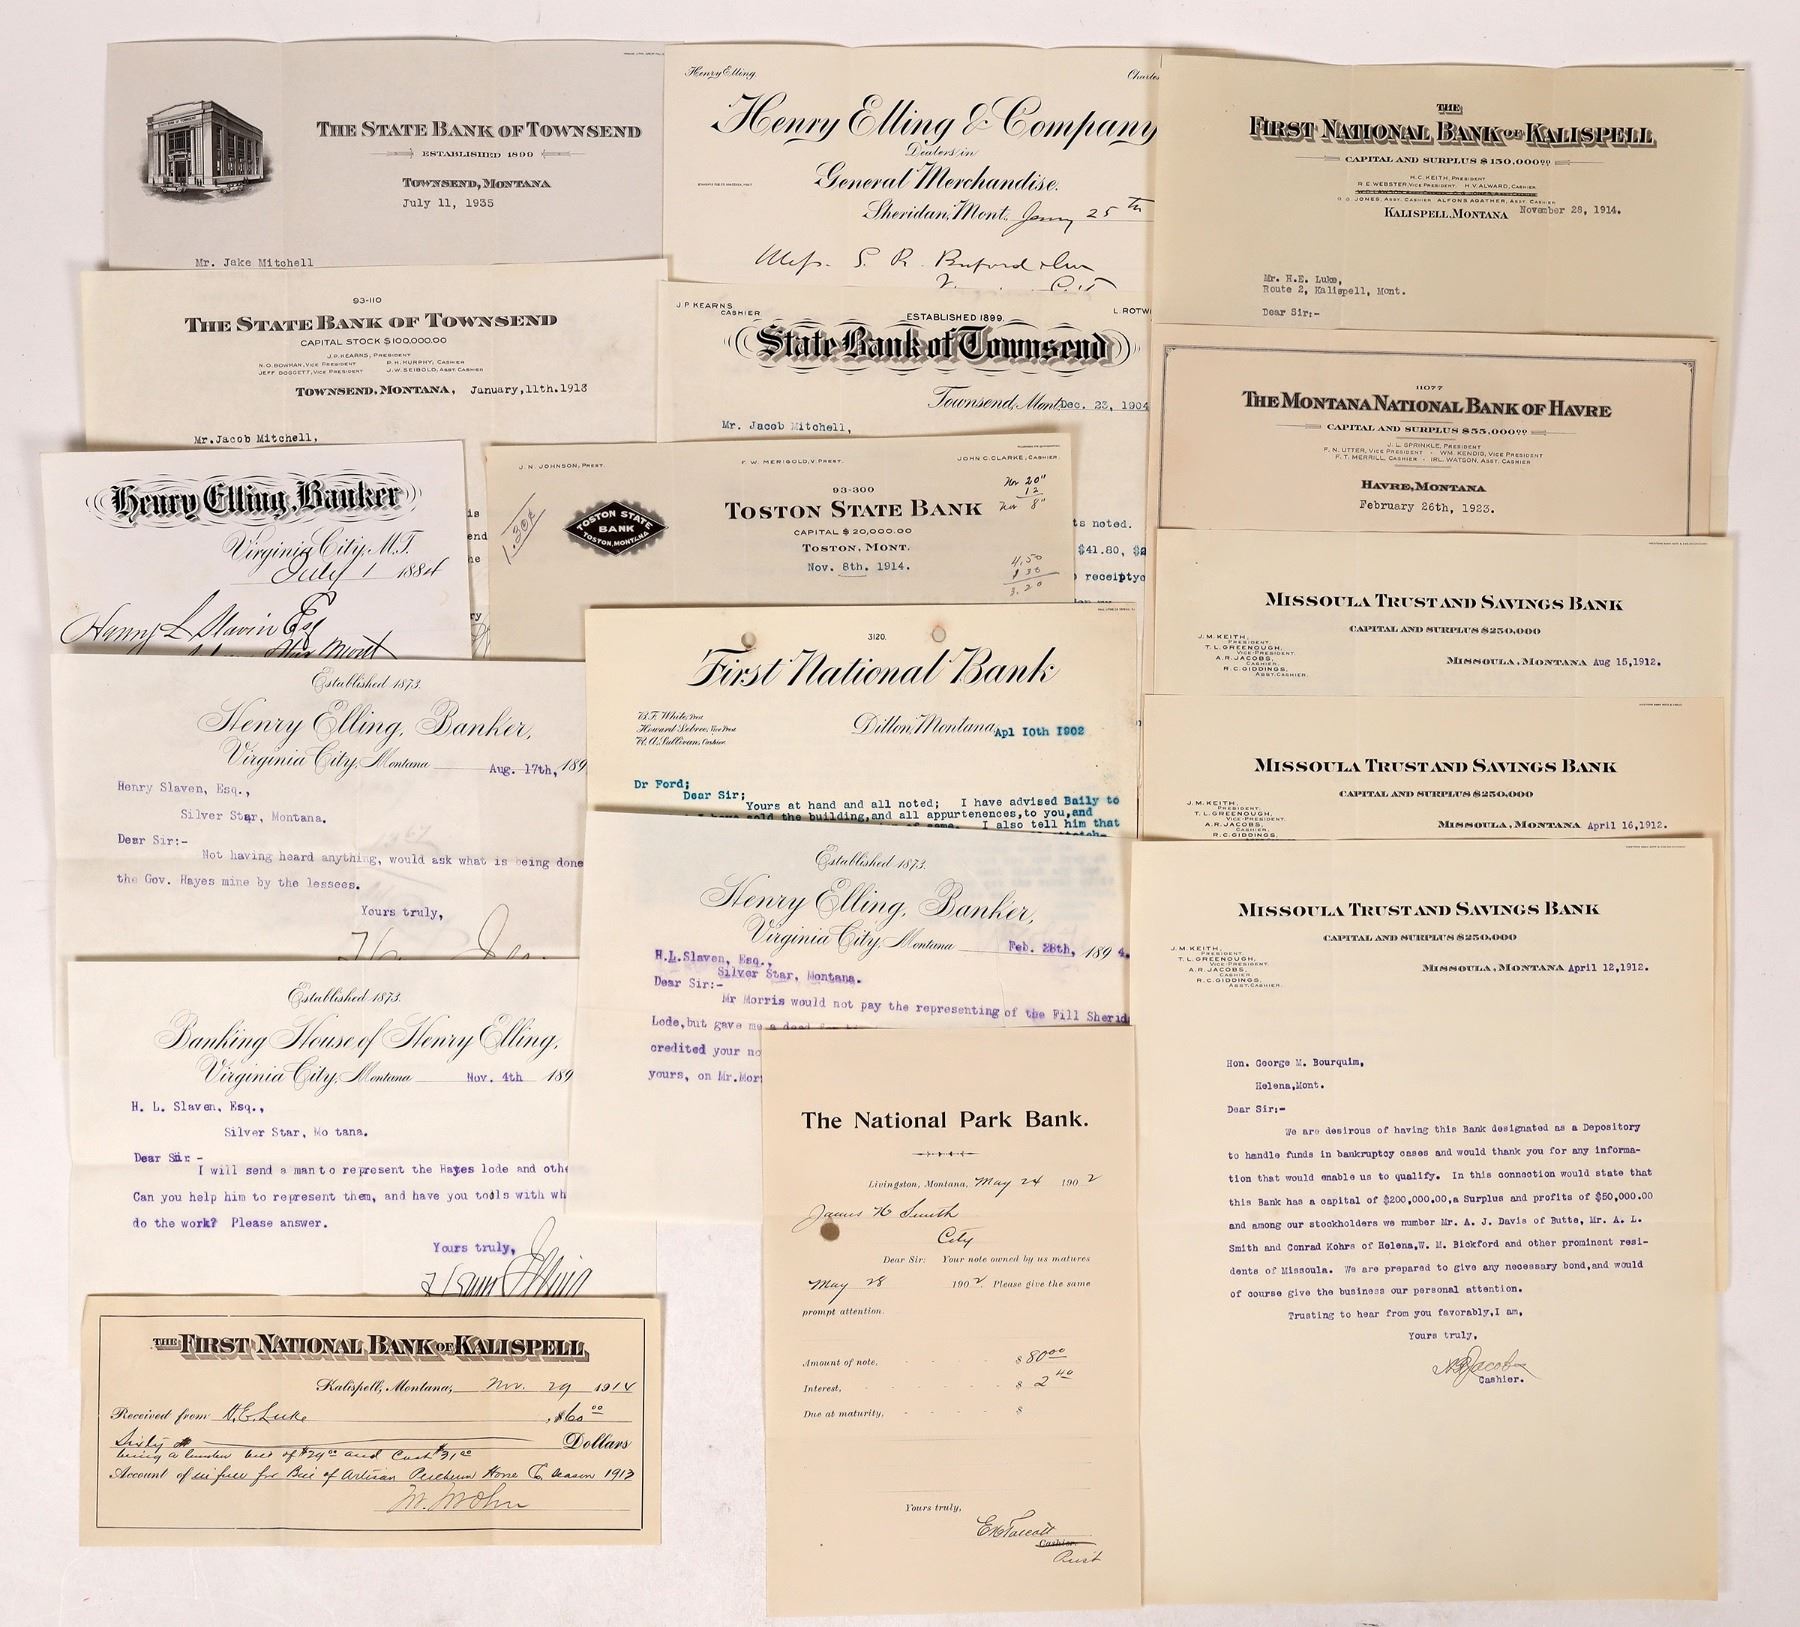 THE STATE BANK OF TOWNSEND
ESTABLISHED 1899
TOWNSEND, MONTANA
July 11, 1935
Mr. Jake Mitchell
Henry Elling.
Charles
Henry Elling & Company
Dealers in
General Merchandise.
Sheridan, Mont. Jany 25th
Mess. S. R. Buford
THE
FIRST NATIONAL BANK OF KALISPELL
CAPITAL AND SURPLUS $150,000.00
H.C. KEITH, PRESIDENT
R.E. WEBSTER, VICE PRESIDENT. H.V. ALWARD, CASHIER
JONES, ASST. CASHIER ALFONS AGATHER, ASST. CASHIER
KALISPELL, MONTANA November 28, 1914.
Mr. H.E. Luke,
Route 2, Kalispell, Mont.
Dear Sir:-
93-110
THE STATE BANK OF TOWNSEND
CAPITAL STOCK $100,000.00
J.P. KEARNS, PRESIDENT
N.O. BOWMAN, VICE PRESIDENT P.H. MURPHY, CASHIER
JEFF DOGGETT, VICE PRESIDENT J.W. SEIBOLD, ASST. CASHIER
TOWNSEND, MONTANA, January, 11th. 1913
Mr. Jacob Mitchell,
J.P. KEARNS
CASHIER
ESTABLISHED 1899.
L. ROTW
State Bank of Townsend
Townsend, Mont. Dec. 23, 1904
Mr. Jacob Mitchell,
ts noted.
$41.80,
receipt
11077
THE MONTANA NATIONAL BANK OF HAVRE
CAPITAL AND SURPLUS $55,000.00
J. L. SPRINKLE, PRESIDENT
F. N. UTTER, VICE PRESIDENT - WM. KENDIG, VICE PRESIDENT
F. T. MERRILL, CASHIER - IRL. WATSON, ASST. CASHIER
HAVRE, MONTANA
February 26th, 1923.
Henry Elling, Banker
Virginia City, M.T.
July 1 1884
Henry L Slavin Esq
Star Mont
J. N. JOHNSON, PREST.
F. W. MERIGOLD, V. PREST.
JOHN C. CLARKE, CASHIER.
93-300
TOSTON STATE BANK
CAPITAL $20,000.00
TOSTON, MONT.
Nov. 8th. 1914.
TOSTON STATE
BANK
TOSTON, MONTANA
Nov 20"
12
Nov 8"
4.50
1 30
3.20
MISSOULA TRUST AND SAVINGS BANK
CAPITAL AND SURPLUS $250,000
J.M. KEITH,
PRESIDENT.
T. L. GREENOUGH,
VICE-PRESIDENT.
A.R. JACOBS,
CASHIER.
R. C. GIDDINGS,
ASST. CASHIER.
MISSOULA, MONTANA Aug 15, 1912.
Established 1873.
Henry Elling, Banker,
Virginia City, Montana Aug. 17th, 189
Henry Slaven, Esq.,
Silver Star, Montana.
Dear Sir:-
Not having heard anything, would ask what is being done
the Gov. Hayes mine by the lessees.
Yours truly,
3120.
First National Bank
B.F. White, Prest
Howard Sebree, Vice Prest
R. A. Sullivan, Cashier
Dillon, Montana, Apl 10th 1902
Dr Ford;
Dear Sir;
Yours at hand and all noted; I have advised Baily to
sold the building, and all appurtenences, to you, and
same. I also tell him that
MISSOULA TRUST AND SAVINGS BANK
CAPITAL AND SURPLUS $250,000
J. M. KEITH,
PRESIDENT.
T. L. GREENOUGH,
VICE-PRESIDENT.
A.R. JACOBS,
CASHIER.
R. C. GIDDINGS,
MISSOULA, MONTANA April 16, 1912.
Established 1873.
Henry Elling, Banker,
Virginia City, Montana Feb. 28th, 1894.
H.L. Slaven, Esq.,
Silver Star, Montana.
Dear Sir:-
Mr Morris would not pay the representing of the Fill Sherid
Lode, but gave me a deed
credited your no
yours, on Mr. Mor
MISSOULA TRUST AND SAVINGS BANK
CAPITAL AND SURPLUS $250,000
J. M. KEITH,
PRESIDENT.
T. L. GREENOUGH,
VICE-PRESIDENT.
A.R. JACOBS,
CASHIER
R. C. GIDDINGS,
ASST. CASHIER.
MISSOULA, MONTANA April 12, 1912.
Hon. George M. Bourquim,
Helena, Mont.
Dear Sir:-
We are desirous of having this Bank designated as a Depository
to handle funds in bankruptcy cases and would thank you for any informa-
tion that would enable us to qualify. In this connection would state that
this Bank has a capital of $200,000.00, a Surplus and profits of $50,000.00
and among our stockholders we number Mr. A. J. Davis of Butte, Mr. A. L.
Smith and Conrad Kohrs of Helena, W. M. Bickford and other prominent resi-
dents of Missoula. We are prepared to give any necessary bond, and would
of course give the business our personal attention.
Trusting to hear from you favorably, I am,
Yours truly,
A R Jacobs
Cashier.
Established 1873.
Banking House of Henry Elling,
Virginia City, Montana Nov. 4th 189
H. L. Slaven, Esq.,
Silver Star, Mo tana.
Dear Sir -
I will send a man to represent the Hayes lode and othe
Can you help him to represent them, and have you tools with wh
do the work? Please answer.
Yours truly,
Henry Elling
The National Park Bank.
Livingston, Montana, May 24 1902
James H Smith
City
Dear Sir: Your note owned by us matures
May 28 1902. Please give the same
prompt attention.
Amount of note, $ 80.00
Interest, $ 2.40
Due at maturity, $
Yours truly,
Cashier.
THE FIRST NATIONAL BANK OF KALISPELL
Kalispell, Montana, Nov. 29 1914
Received from H. E. Luke $60.00
Sixty Dollars
being a lumber bill of $29.00 and Cash $31.00
Account of in full for Bill of Artisan Percheron Horse Co season 1913